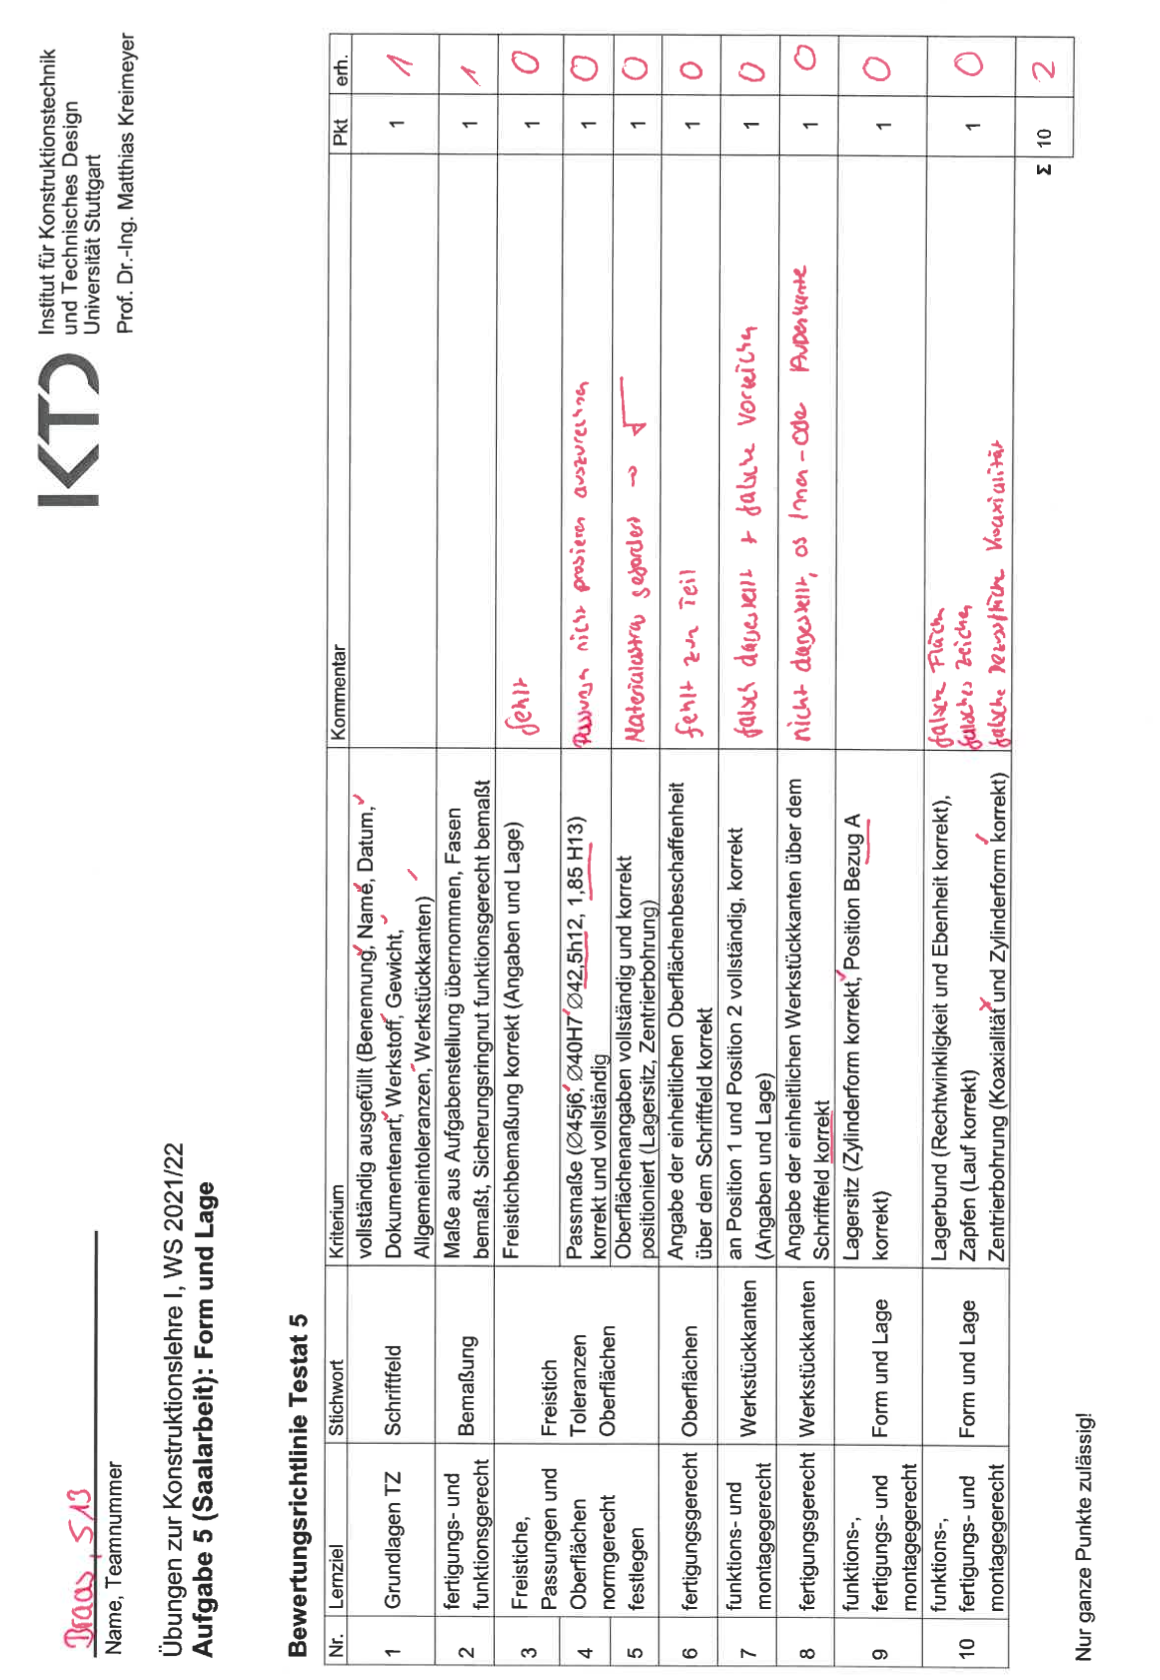 KTD
Institut für Konstruktionstechnik
und Technisches Design
Universität Stuttgart
Prof. Dr.-Ing. Matthias Kreimeyer
Braas, S13
Name, Teamnummer
Übungen zur Konstruktionslehre I, WS 2021/22
Aufgabe 5 (Saalarbeit): Form und Lage
Bewertungsrichtlinie Testat 5
Nr. Lernziel Stichwort Kriterium Kommentar Pkt erh.
1 Grundlagen TZ Schriftfeld vollständig ausgefüllt (Benennung, Name, Datum,
Dokumentenart, Werkstoff, Gewicht,
Allgemeintoleranzen, Werkstückkanten) 1 1
2 fertigungs- und
funktionsgerecht Bemaßung Maße aus Aufgabenstellung übernommen, Fasen
bemaßt, Sicherungsringnut funktionsgerecht bemaßt 1 1
3 Freistiche,
Passungen und
Oberflächen
normgerecht
festlegen Freistich
Toleranzen
Oberflächen Freistichbemaßung korrekt (Angaben und Lage) fehlt 1 0
4 Passmaße (Ø45j6, Ø40H7 Ø42,5h12, 1,85 H13)
korrekt und vollständig Passungen nicht auszurechnen 1 0
5 Oberflächenangaben vollständig und korrekt
positioniert (Lagersitz, Zentrierbohrung) Materialabtrag gefordert → 1 0
6 fertigungsgerecht Oberflächen Angabe der einheitlichen Oberflächenbeschaffenheit
über dem Schriftfeld korrekt fehlt zum Teil 1 0
7 funktions- und
montagegerecht Werkstückkanten an Position 1 und Position 2 vollständig, korrekt
(Angaben und Lage) falsch dargestellt + falsche Vorzeichen 1 0
8 fertigungsgerecht Werkstückkanten Angabe der einheitlichen Werkstückkanten über dem
Schriftfeld korrekt nicht dargestellt, ob Innen- oder Außenkante 1 0
9 funktions-,
fertigungs- und
montagegerecht Form und Lage Lagersitz (Zylinderform korrekt, Position Bezug A
korrekt) 1 0
10 funktions-,
fertigungs- und
montagegerecht Form und Lage Lagerbund (Rechtwinkligkeit und Ebenheit korrekt),
Zapfen (Lauf korrekt)
Zentrierbohrung (Koaxialität und Zylinderform korrekt) falsche Fläche
falsches Zeichen
falsche Koaxialität 1 0
Σ 10 2
Nur ganze Punkte zulässig!